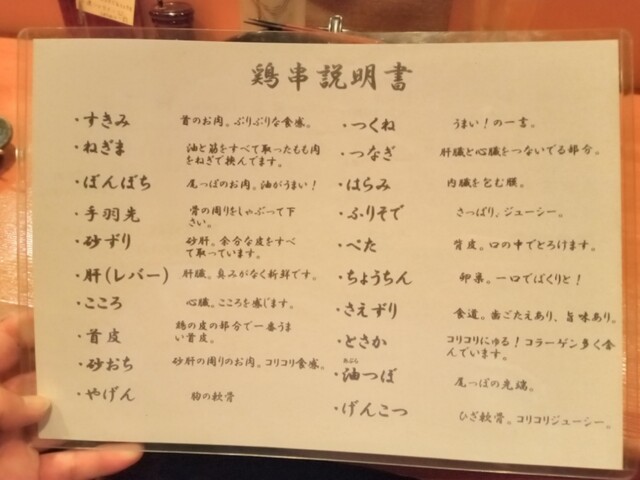 鶏串説明書
・すきみ 首のお肉。ぷりぷりな食感。
・ねぎま 油と筋をすべて取ったもも肉
をねぎで挟んでます。
・ぼんぼち 尾っぽのお肉。油がうまい！
・手羽先 骨の周りをしゃぶって下
さい。
・砂ずり 砂肝。余分な皮をすべ
て取っています。
・肝(レバー) 肝臓。臭みがなく新鮮です。
・こころ 心臓。こころを感じます。
・首皮 鶏の皮の部分で一番うま
い首皮。
・砂おち 砂肝の周りのお肉。コリコリ食感。
・やげん 胸の軟骨
・つくね うまい！の一言。
・つなぎ 肝臓と心臓をつないでる部分。
・はらみ 内臓を包む膜。
・ふりそで さっぱり、ジューシー。
・ぺた 背皮。口の中でとろけます。
・ちょうちん 卵巣。一口でぱくりと！
・さえずり 食道。歯ごたえあり、旨味あり。
・とさか コリコリにゅる！コラーゲン多く含
んでいます。
あぶら
・油つぼ 尾っぽの先端。
・げんこつ ひざ軟骨。コリコリジューシー。